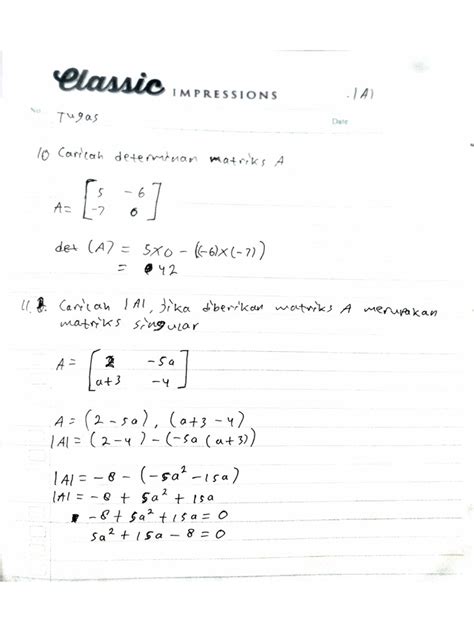 Classic IMPRESSIONS
|A|
No.
Tugas
Date
10 Carilah determinan matriks A
A = [5 -6
-7 0]
det (A) = 5x0 - ((-6)x(-7))
= 42
11. Carilah |A|, jika diberikan matriks A merupakan
matriks singular
A = [2 -5a
a+3 -4]
A = (2 - 5a), (a+3 - 4)
|A| = (2-4) - (-5a (a+3))
|A| = -8 - (-5a² - 15a)
|A| = -8 + 5a² + 15a
-8 + 5a² + 15a = 0
5a² + 15a - 8 = 0